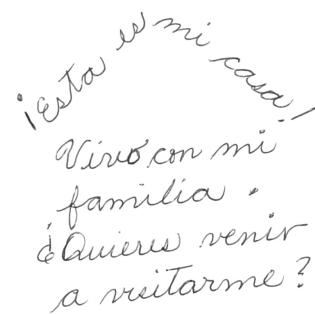 ¡Esta es mi casa!
Vivo con mi
familia.
¿Quieres venir
a visitarme?